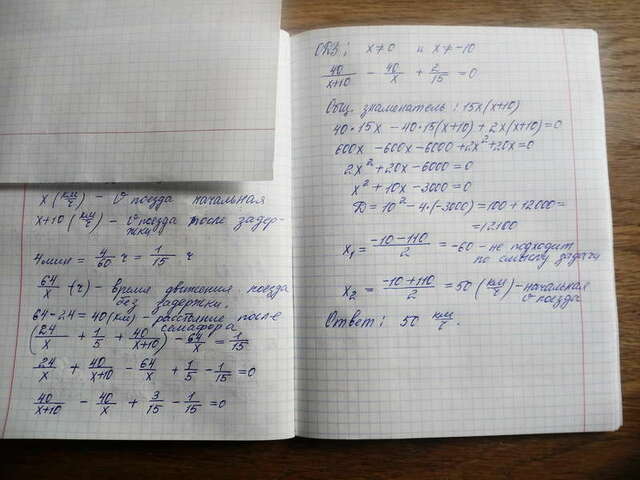 x (км/ч) - v поезда начальная
x+10 (км/ч) - v поезда после задер-
жки
4 мин = 4/60 ч = 1/15 ч
64/x (ч) - время движения поезда
без задержки.
64-24 = 40 (км) - расстояние после
семафора
(24/x + 1/5 + 40/(x+10)) - 64/x = 1/15
24/x + 40/(x+10) - 64/x + 1/5 - 1/15 = 0
40/(x+10) - 40/x + 3/15 - 1/15 = 0
ОДЗ: x≠0 и x≠-10
40/(x+10) - 40/x + 2/15 = 0
Общ. знаменатель: 15x(x+10)
40·15x - 40·15(x+10) + 2x(x+10) = 0
600x - 600x - 6000 + 2x²+20x = 0
2x² + 20x - 6000 = 0
x² + 10x - 3000 = 0
D = 10² - 4·(-3000) = 100 + 12000 =
= 12100
x₁ = (-10-110)/2 = -60 - не подходит
по смыслу задачи
x₂ = (-10+110)/2 = 50 (км/ч) - начальная
v поезда
Ответ: 50 км/ч.